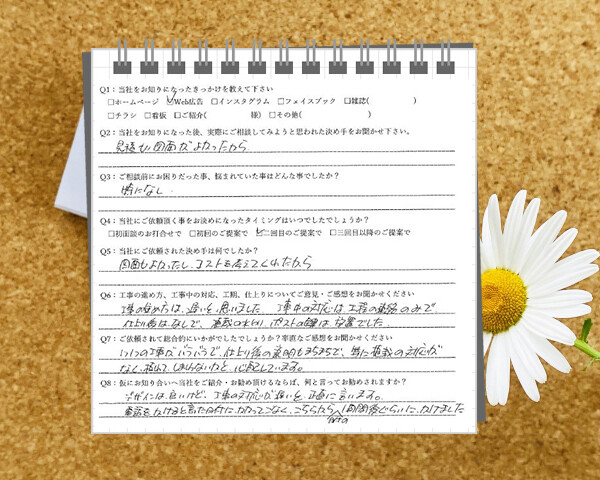 Q1：当社をお知りになったきっかけを教えて下さい
□ホームページ ☑Web広告 □インスタグラム □フェイスブック □雑誌( )
□チラシ □看板 □ご紹介( 様) □その他( )
Q2：当社をお知りになった後、実際にご相談してみようと思われた決め手をお聞かせ下さい。
見積も図面がよかったから
Q3：ご相談前にお困りだった事、悩まれていた事はどんな事でしたか？
特になし.
Q4：当社にご依頼頂く事をお決めになったタイミングはいつでしたでしょうか？
□初面談のお打合せで □初回のご提案で ☑二回目のご提案で □三回目以降のご提案で
Q5：当社にご依頼された決め手は何でしたか？
図面もよかったし、コストを考えてくれたから
Q6：工事の進め方、工事中の対応、工期、仕上りについてご意見・ご感想をお聞かせください
工事の進め方は、遅いと思いました 工事中の対応は工程の連絡のみで、
仕上り後はなしで、植栽の水やり、ポストの鍵は放置でした。
Q7：ご依頼されて総合的にいかがでしたでしょうか？率直なご感想をお聞かせください
1つ1つの工事がバラバラで、仕上り後の説明もまちまちで、特に植栽の対応が
なく、枯れてしまわないかと心配しています。
Q8：仮にお知り合いへ当社をご紹介・お勧め頂けるならば、何と言ってお勧めされますか？
デザインは良いけど、工事の対応が遅いと正直に言います。
電話をかけると言った日付にかかってこなく、こちらから 1週間後ぐらいに、かけました